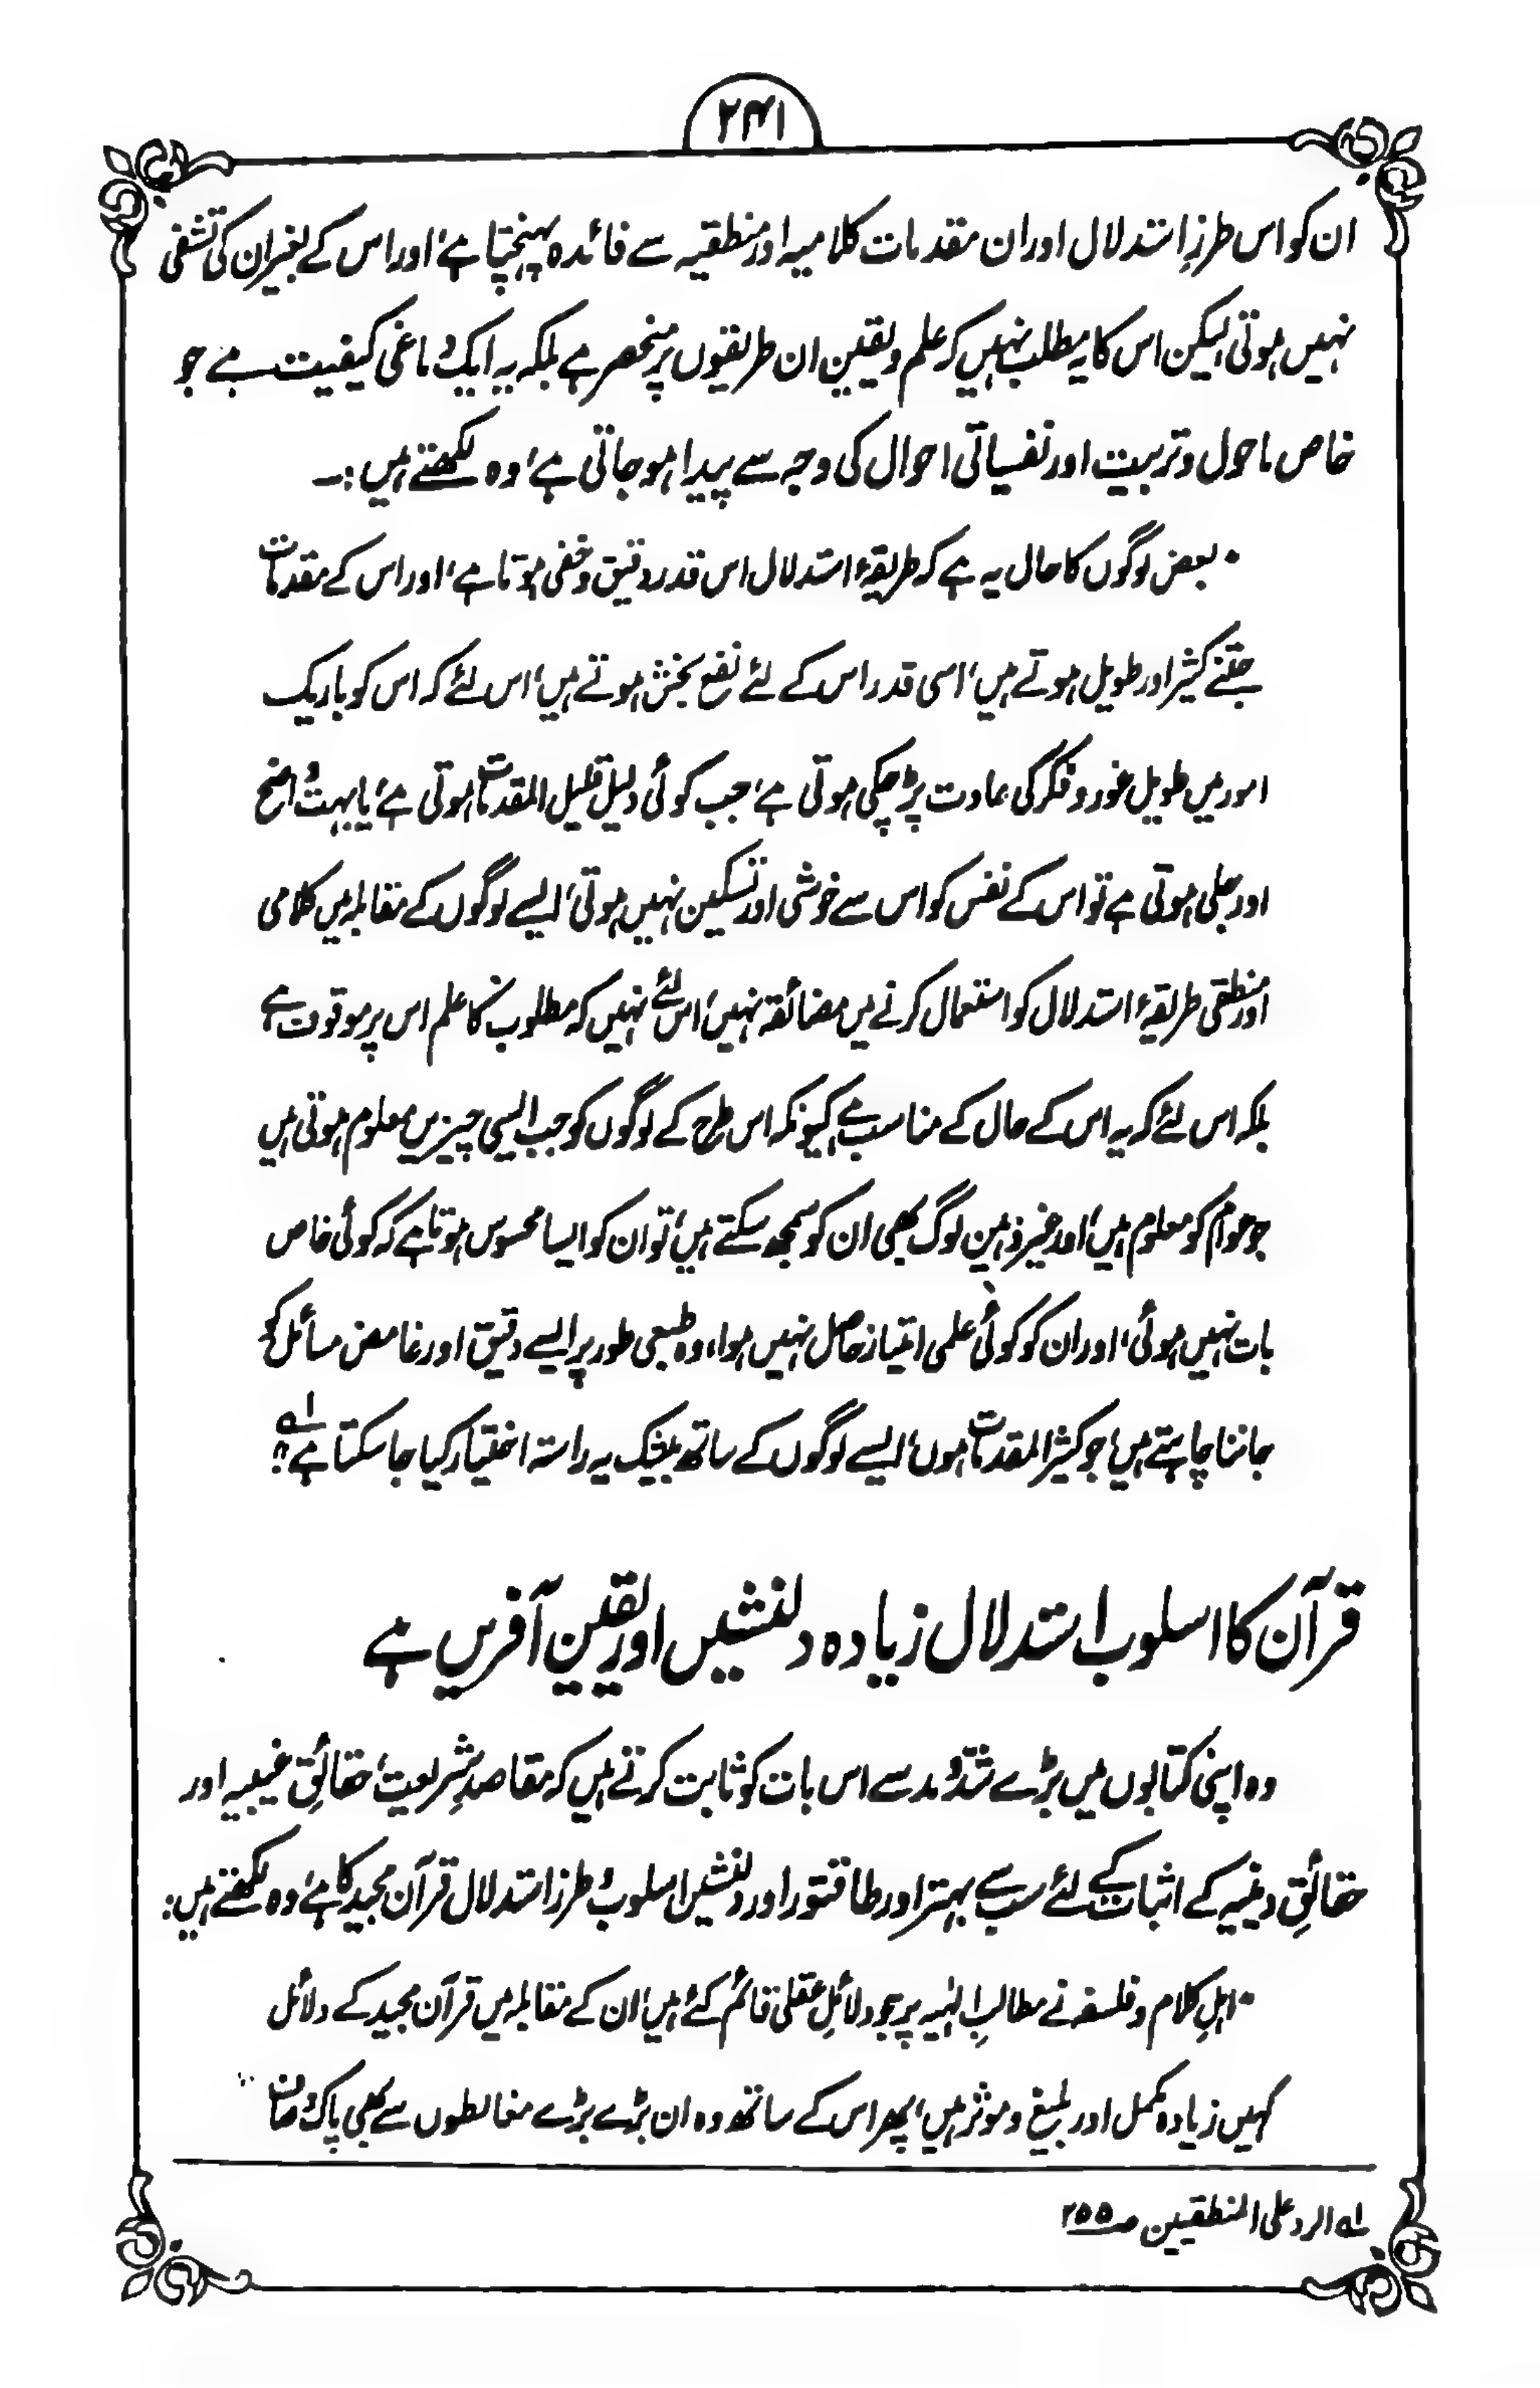 ۲۴۱
ان کو اس طرزِ استدلال اور ان مقدمات کلامیہ اور منطقیہ سے فائدہ پہنچتا ہے، اور اس کے بغیر ان کی تشفی
نہیں ہوتی، لیکن اس کا یہ مطلب نہیں کہ علم و یقین ان طریقوں پر منحصر ہے بلکہ یہ ایک دماغی کیفیت ہے جو
خاص ماحول و تربیت اور نفسیاتی احوال کی وجہ سے پیدا ہو جاتی ہے، وہ لکھتے ہیں :۔
"بعض لوگوں کا حال یہ ہے کہ طریقۂ استدلال اس قدر دقیق و خفی ہوتا ہے، اور اس کے مقدمات
جتنے کثیر اور طویل ہوتے ہیں، اسی قدر اس کے لئے نفع بخش ہوتے ہیں، اس لئے کہ اس کو باریک
امور میں طویل غور و فکر کی عادت پڑ چکی ہوتی ہے، جب کوئی دلیل قلیل المقدمات ہوتی ہے، یا بہت واضح
اور جلی ہوتی ہے تو اس کے نفس کو اس سے خوشی اور تسکین نہیں ہوتی، ایسے لوگوں کے مقابلہ میں کلامی
اور منطقی طریقۂ استدلال کو استعمال کرنے میں مضائقہ نہیں، اس لئے نہیں کہ مطلوب کا علم اس پر موقوف ہے
بلکہ اس لئے کہ یہ اس کے حال کے مناسب ہے، کیونکہ اس طرح کے لوگوں کو جب ایسی چیزیں معلوم ہوتی ہیں
جو عوام کو معلوم ہیں، اور غیر ذہین لوگ بھی ان کو سمجھ سکتے ہیں، تو ان کو ایسا محسوس ہوتا ہے کہ کوئی خاص
بات نہیں ہوئی، اور ان کو کوئی علمی امتیاز حاصل نہیں ہوا، وہ طبعی طور پر ایسے دقیق اور غامض مسائل کو
جاننا چاہتے ہیں، جو کثیر المقدمات ہوں، ایسے لوگوں کے ساتھ بیشک یہ راستہ اختیار کیا جا سکتا ہے" ؎۱
قرآن کا اسلوب استدلال زیادہ دلنشیں اور یقین آفریں ہے
وہ اپنی کتابوں میں بڑے شد و مد سے اس بات کو ثابت کرتے ہیں کہ مقاصدِ شریعت، حقائقِ غیبیہ اور
حقائقِ دینیہ کے اثبات کے لئے سب سے بہتر اور طاقتور اور دلنشیں اسلوب و طرز استدلال قرآن مجید کا ہے، وہ لکھتے ہیں :
"اہلِ کلام و فلسفہ نے مطالبِ الٰہیہ پر جو دلائلِ عقلی قائم کئے ہیں، ان کے مقابلہ میں قرآن مجید کے دلائل
کہیں زیادہ مکمل اور بلیغ و موثر ہیں، پھر اس کے ساتھ وہ ان بڑے بڑے مغالطوں سے بھی پاک و صاف
؎۱ الرد علی المنطقیین ص۲۵۵